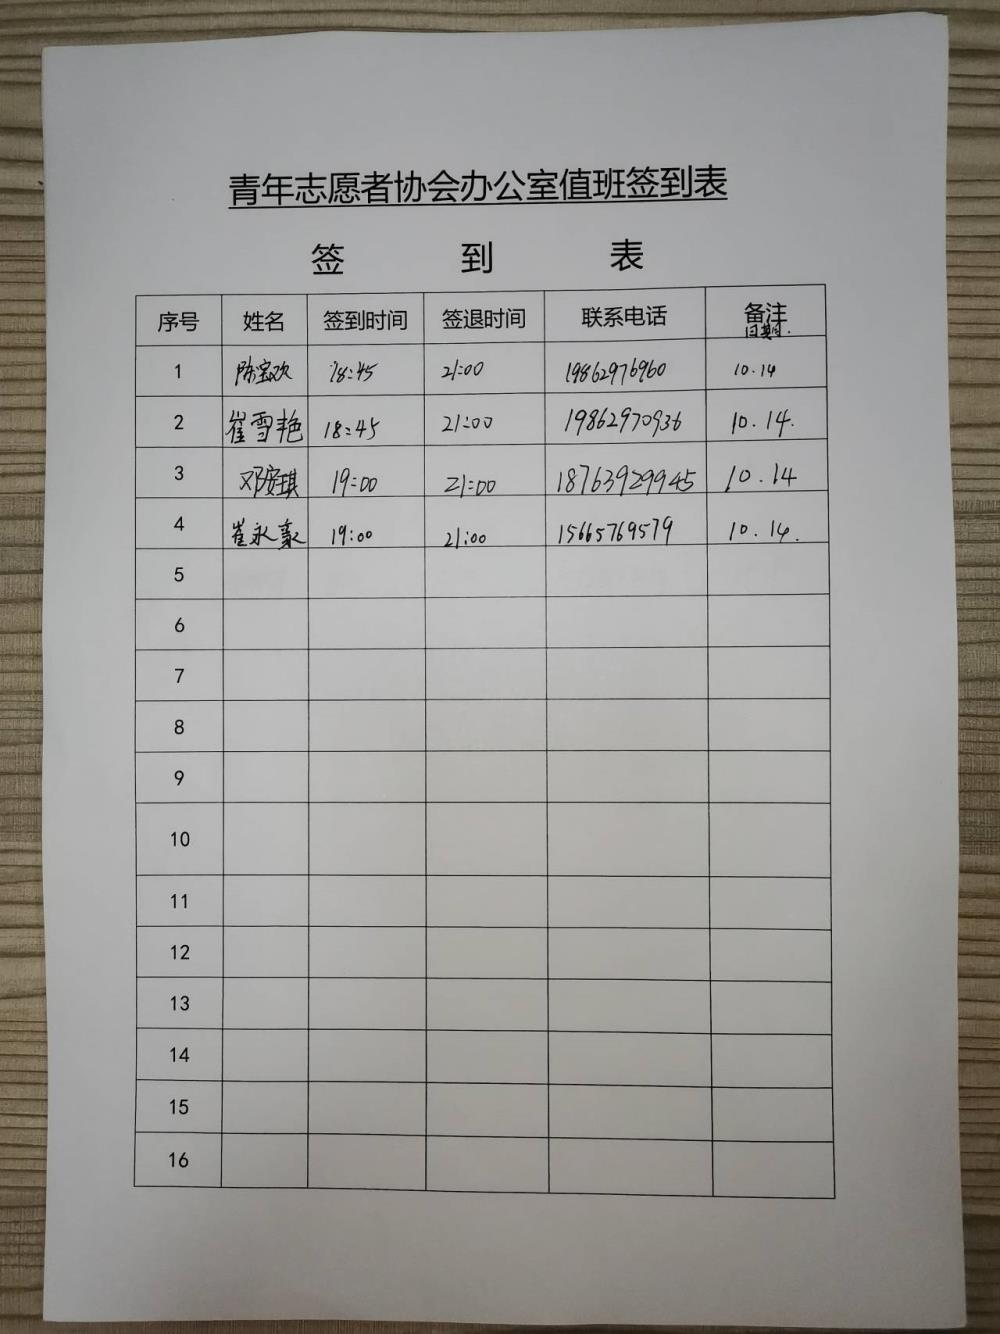 青年志愿者协会办公室值班签到表
签 到 表
序号 姓名 签到时间 签退时间 联系电话 备注 日期.
1 陈宝欢 18:45 21:00 19862976960 10.14
2 崔雪艳 18:45 21:00 19862970936 10.14.
3 邓安琪 19:00 21:00 18763929945 10.14
4 崔永豪 19:00 21:00 15665769579 10.14.
5
6
7
8
9
10
11
12
13
14
15
16